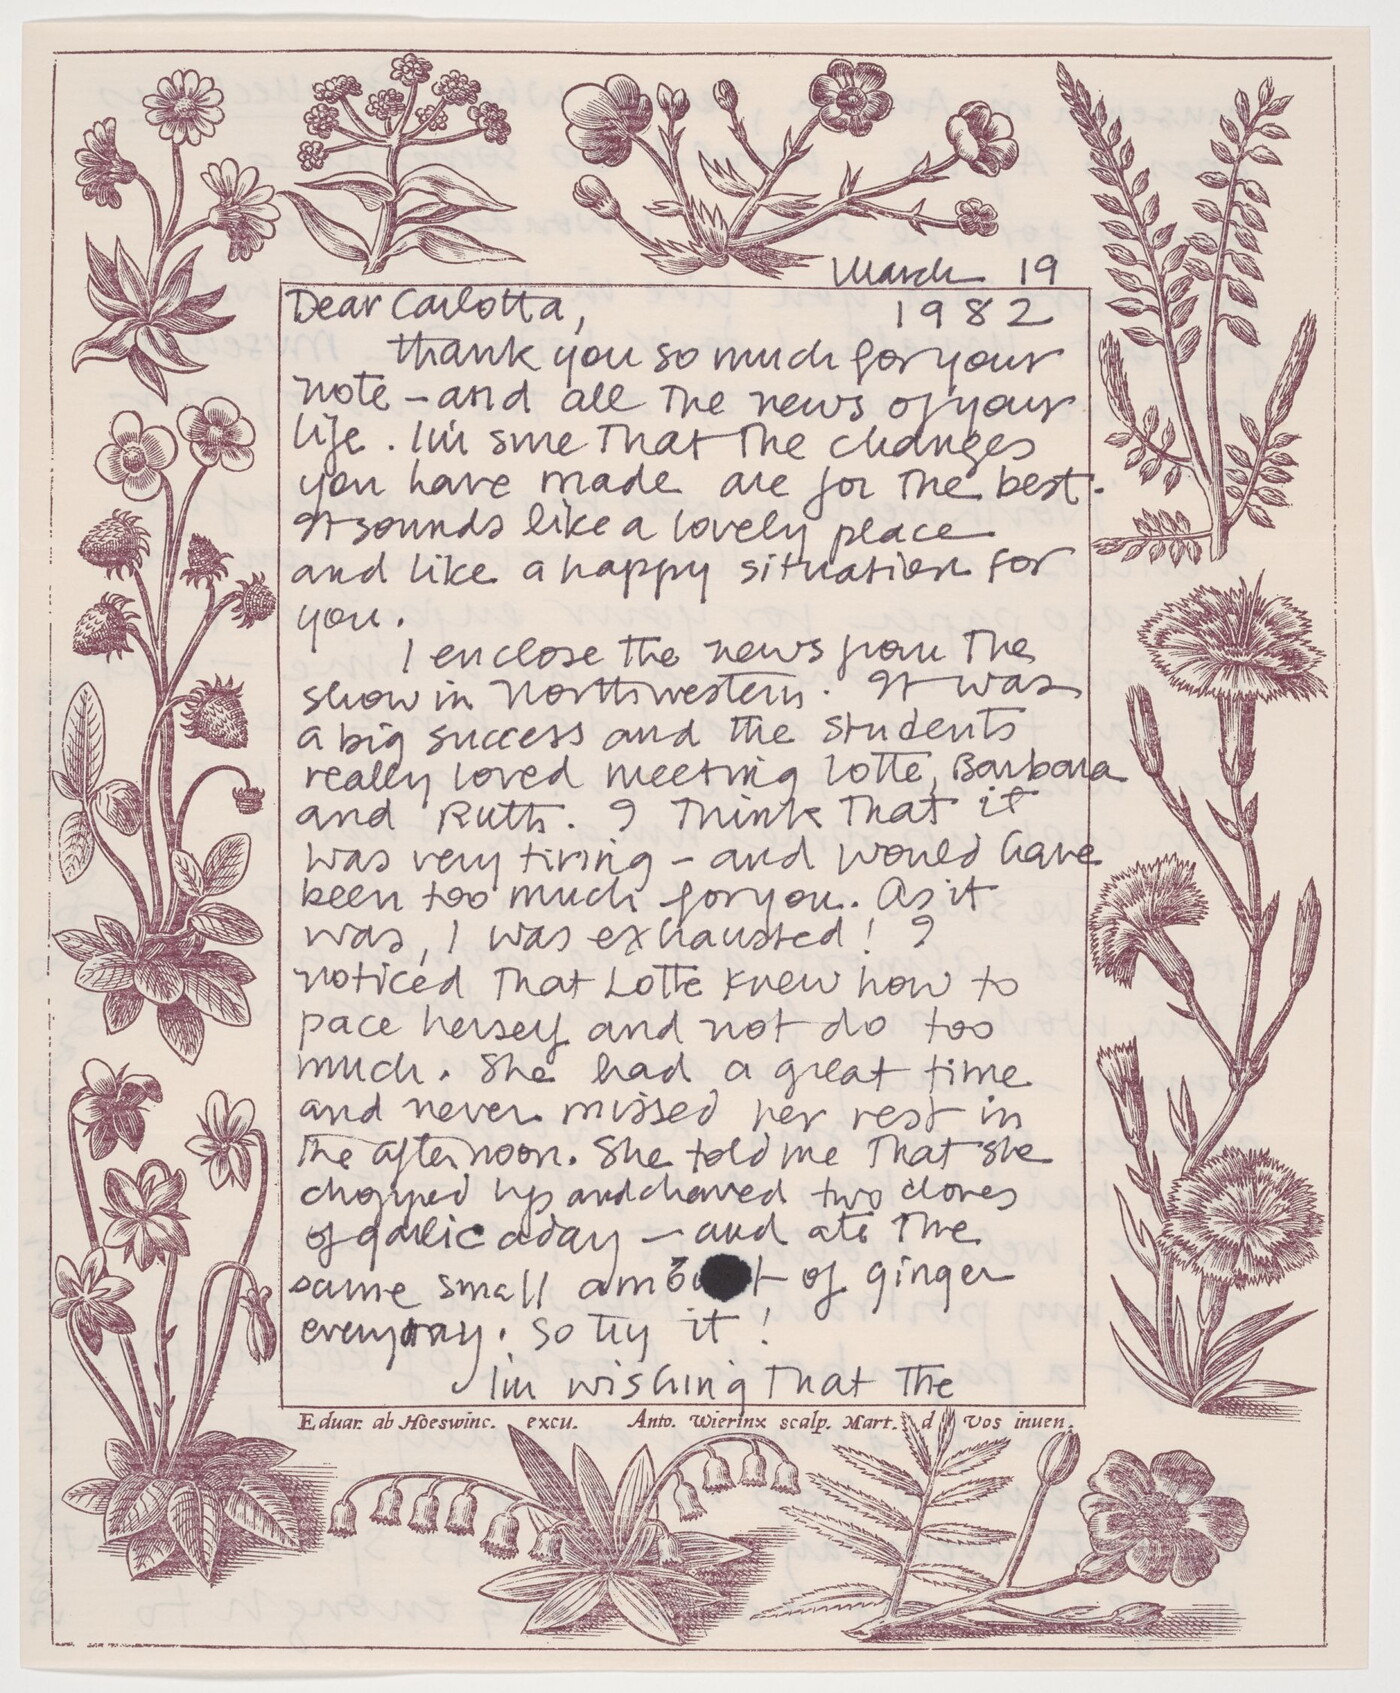 March 19
1982
Dear Carlotta,
thank you so much for your
note – and all the news of your
life. I'm sure that the changes
you have made are for the best.
It sounds like a lovely place
and like a happy situation for
you.
I enclose the news from the
show in Northwestern. It was
a big success and the students
really loved meeting Lotte, Barbara
and Ruth. I think that it
was very tiring – and would have
been too much for you. As it
was, I was exhausted! I
noticed that Lotte knew how to
pace herself and not do too
much. She had a great time
and never missed her rest in
the afternoon. She told me that she
chopped up and chewed two cloves
of garlic a day – and ate the
same small amount of ginger
everyday. So try it!
I'm wishing that the
Eduar. ab Hoeswinc. excu. Anto. Wierinx scalp. Mart. d Vos inuen.